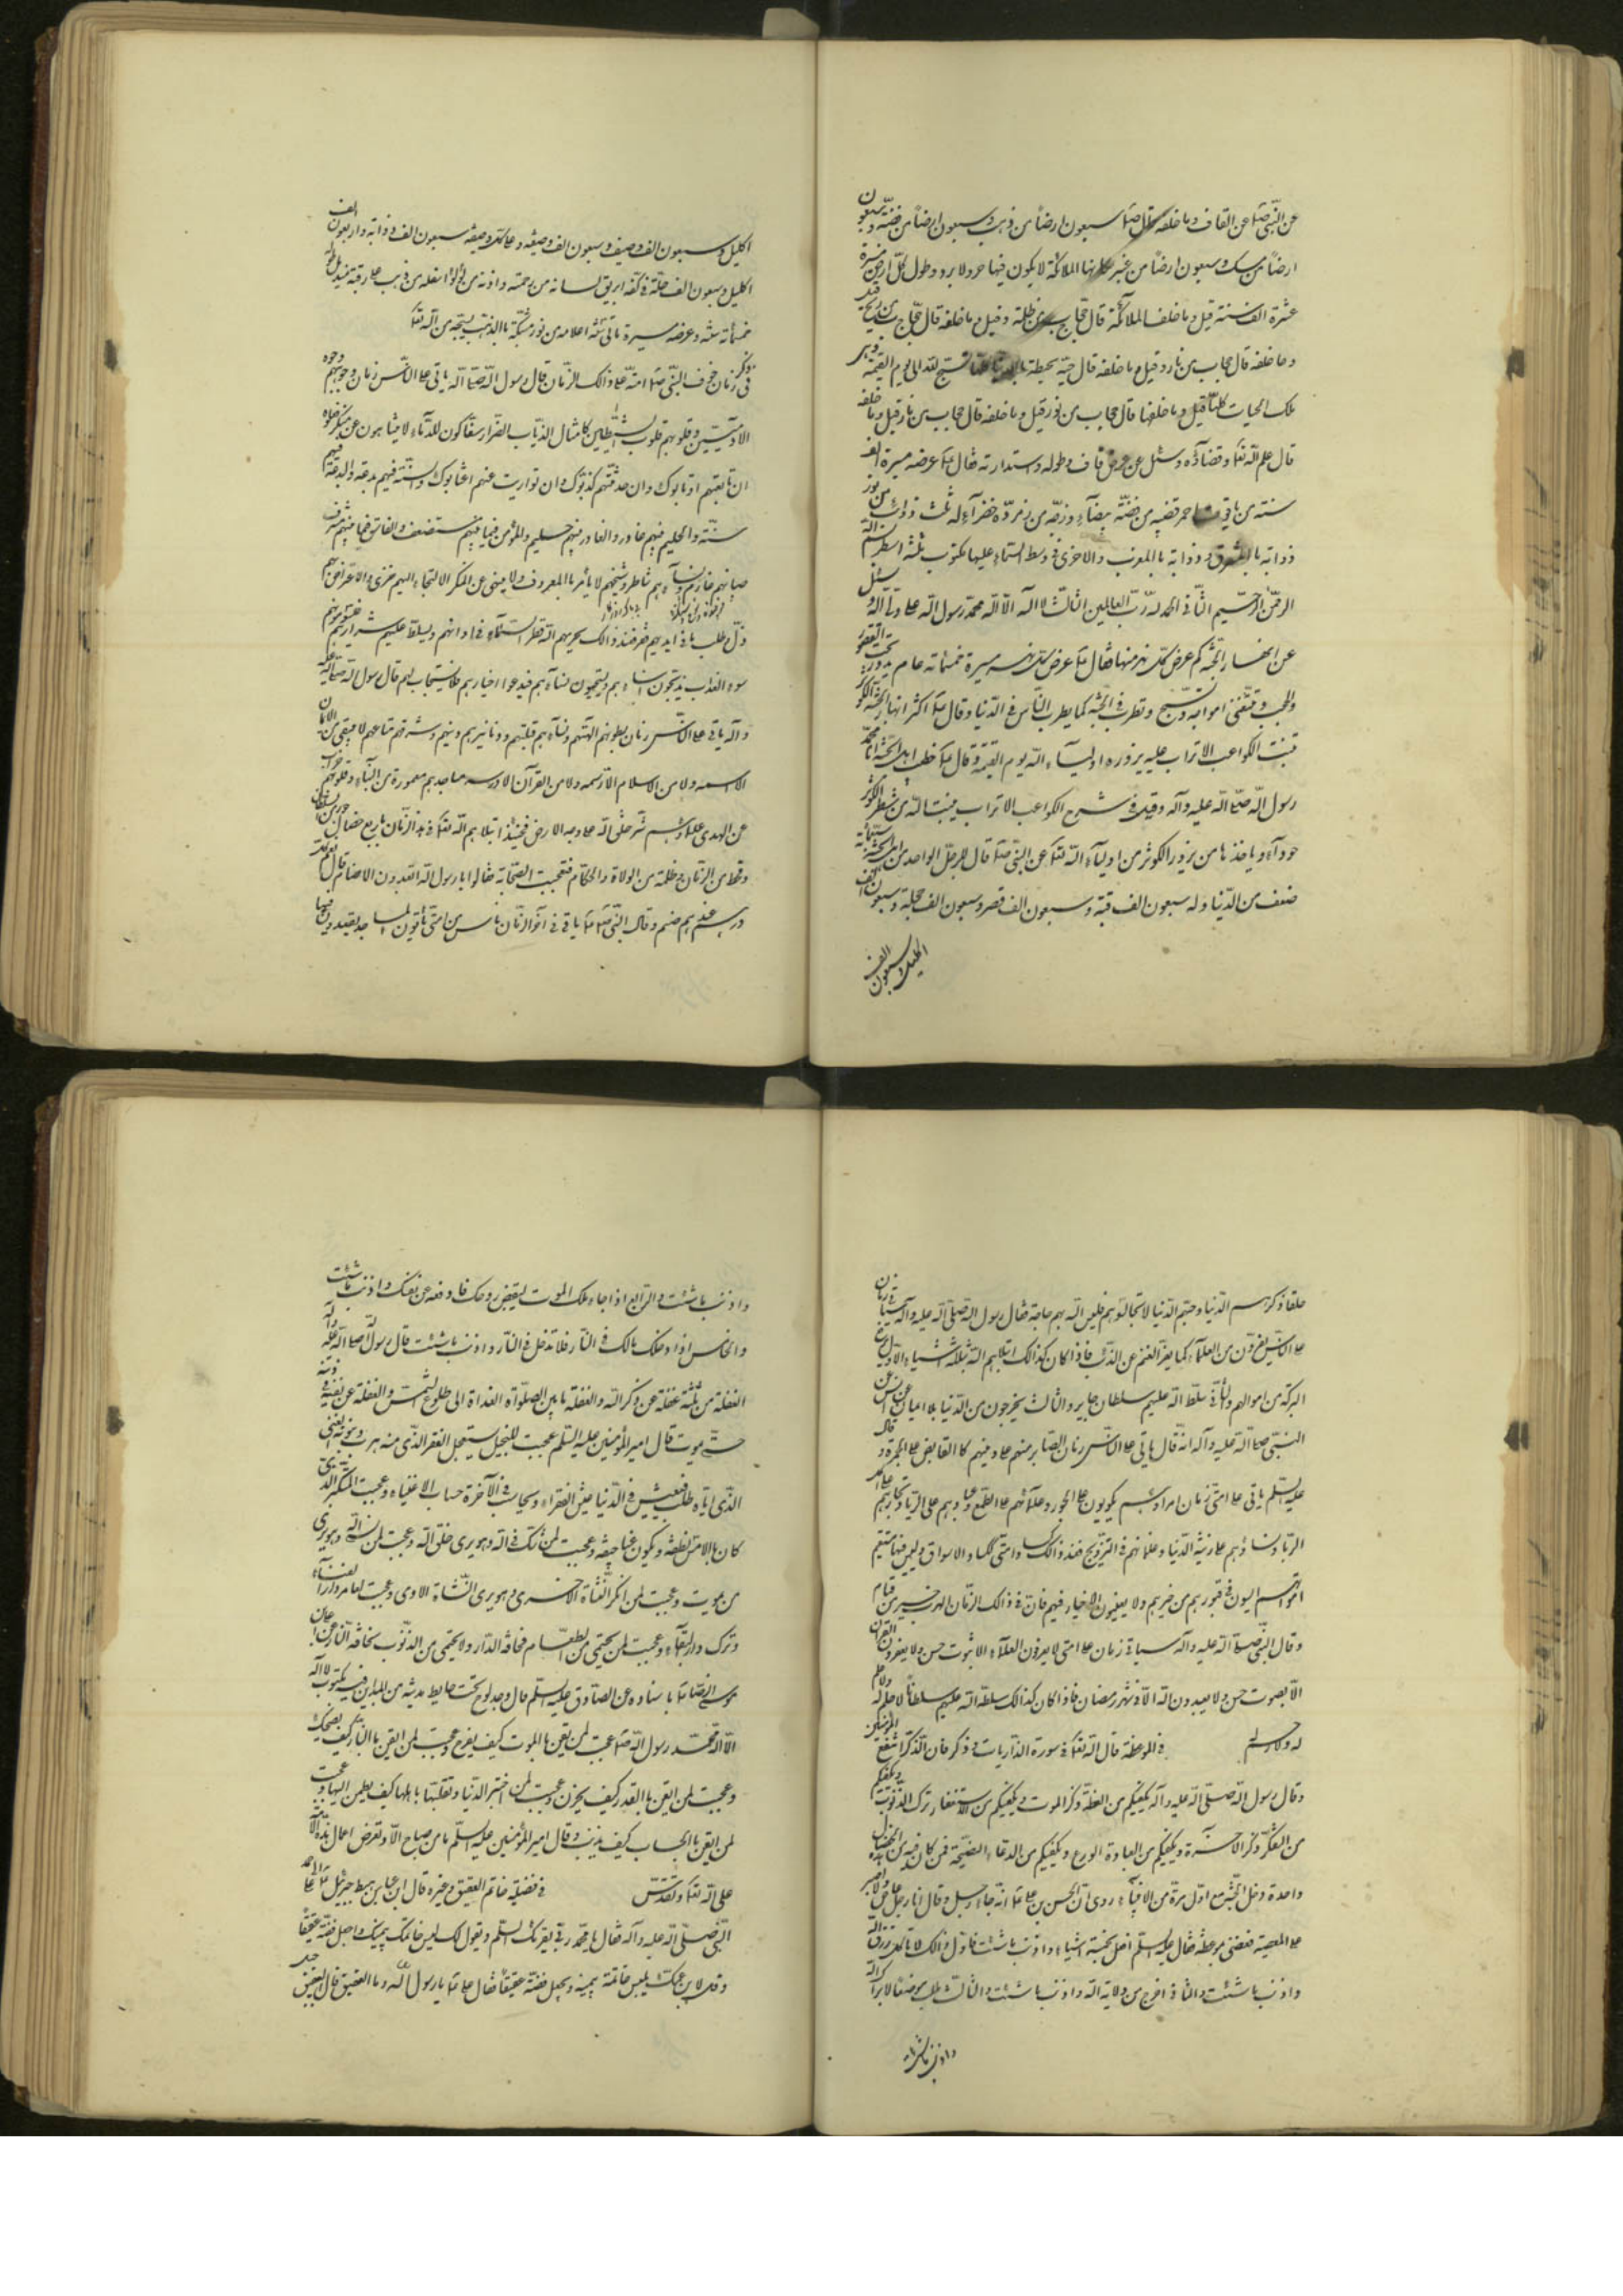 عن النبی صلعم عن القاف وما خلفه قال صلعم سبعون ارضاً من ذهب وسبعون ارضاً من فضة وسبعون
ارضاً من مسک وسبعون ارضاً من عنبر سکانها الملائکة لا یکون فیها حر ولا برد وطول کل ارض مسیرة
عشرة الف سنة قیل وما خلف الملائکة قال حجاب من ظلمة وقیل وما خلفه قال حجاب من ریح قیل
وما خلفه قال حجاب من نار وقیل وما خلفه قال حیة محیطة بالدنیا کلها تسبح لله الی یوم القیمة وهی
ملک الحیات کلها قیل وما خلفها قال حجاب من نور قیل وما خلفه قال حجاب من نار وقیل وما خلفه
قال علم الله تعا وقضاؤه وسئل عن عرض قاف وطوله واستدارته فقال عم عرضه مسیرة الف
سنة من یاقوت احمر قضیبه من فضة بیضآء وزجه من زمردة خضرآء له ثلث ذوائب من نور
ذوابة بالمشرق وذوابة بالمغرب والاخری فی وسط السماء علیها مکتوب ثلثة اسطر بسم الله
الرحمن الرحیم الثانی الحمد لله رب العالمین الثالث لا اله الا الله محمد رسول الله صلی الله علیه وآله وسئل
عن انهار الجنة کم عرض کل نهر منها فقال عم عرض کل نهر مسیرة خمسمائة عام یدور تحت القصور
والحجب وتتغنی امواجه وتسبح وتطرب فی الجنة کما یطرب الناس فی الدنیا وقال عم اکثر انهار الجنة الکوثر
تنبت الکواعب الاتراب علیه یزوره اولیآء الله یوم القیمة وقال عم خطیب اهل الجنة انا محمد
رسول الله صلی الله علیه وآله وقیل فی شرح الکواعب الاتراب ینبت الله من شطر الکوثر
حورآء ویاخذها من یزور الکوثر من اولیآء الله تعا عن النبی صلعم قال للرجل الواحد من اهل الجنة سبعمائة
ضعف من الدنیا وله سبعون الف قبة وسبعون الف قصر وسبعون الف حجلة وسبعون الف
اکلیل وسبعون الف
اکلیل وسبعون الف وصیف وسبعون الف وصیفة وعلی کل وصیفة سبعون الف ذوابة واربعون الف
اکلیل وسبعون الف حلة فی کفه ابریق لسانه من رحمة واذنه من لؤلؤ اسفله من ذهب علی رقبته مندیل طوله
خمسمائة سنة وعرضه مسیرة مائتی سنة اعلامه من نور مشبکة بالذهب نسجه من الله تعا
فی ذکر زمان خوف النبی صلعم امته علی ذالک الزمان قال رسول الله صلعم یاتی علی الناس زمان وجوههم وجوه
الآدمیین وقلوبهم قلوب الشیاطین کامثال الذئاب الضرار سفاکون للدمآء لا یتناهون عن منکر فعلوه
ان تابعتهم ارتابوک وان حدثتهم کذبوک وان تواریت عنهم اغتابوک السنة فیهم بدعة والبدعة فیهم
سنة والحلیم فیهم غادر والغادر فیهم حلیم والمؤمن فیما بینهم مستضعف والفاسق فیما بینهم مشرف
صبیانهم عارم ونسآءهم شاطر وشیخهم لا یأمر بالمعروف ولا ینهی عن المنکر الالتجاء الیهم خزی والاعتزاز بهم
ذل وطلب ما فی ایدیهم فقر فعند ذالک یحرمهم الله قطر السماء فی اوانه ویسلط علیهم شرارهم فیسومونهم
سوء العذاب یذبحون ابناءهم ویستحیون نسآءهم فیدعوا خیارهم فلا یستجاب لهم قال رسول الله صلی الله علیه
وآله یاتی علی الناس زمان بطونهم آلهتهم ونسآءهم قبلتهم ودنانیرهم دینهم وشرفهم متاعهم لا یبقی من الایمان
الا اسمه ولا من الاسلام الا رسمه ولا من القرآن الا درسه مساجدهم معمورة من البنآء وقلوبهم خراب
عن الهدی علماؤهم شر خلق الله علی وجه الارض فحینئذ ابتلاهم الله تعا فی هذا الزمان باربع خصال جور من السلطان
وقحط من الزمان وظلم من الولاة والحکام فتعجبت الصحابة فقالوا یا رسول الله ایعبدون الاصنام قال نعم کل
درهم عندهم صنم وقال النبی صلعم یاتی فی آخر الزمان ناس من امتی یاتون المساجد یقعدون فیها
حلقا ذکرهم الدنیا وحبهم الدنیا لا تجالسوهم فلیس لله بهم حاجة فقال رسول الله صلی الله علیه وآله سیاتی زمان
علی الناس یفرون من العلمآء کما یفر الغنم عن الذئب فاذا کان کذالک ابتلاهم الله بثلثة اشیاء الاول یرفع
البرکة من اموالهم والثانی سلط الله علیهم سلطان جایر والثالث یخرجون من الدنیا بلا ایمان عن انس عن
النبی صلی الله علیه وآله انه قال یاتی علی الناس زمان الصابر منهم علی دینهم کالقابض علی الجمرة وقال
علیه السلم یاتی علی امتی زمان امراؤهم یکونون علی الجور وعلمآئهم علی الطمع وعبادهم علی الریا وتجارهم علی اکل
الربا ونساؤهم علی زینة الدنیا وغلمانهم فی التزویج فعند ذالک کساد امتی ککساد الاسواق ولیس فیها مستقیم
امواتهم آیسون فی قبورهم من خیرهم ولا یعیشون الاخیار فیهم فان فی ذالک الزمان الهرب خیر من القیام
وقال النبی صلی الله علیه وآله سیاتی زمان علی امتی لا یعرفون العلمآء الا بثوب حسن ولا یعرفون القرآن
الا بصوت حسن ولا یعبدون الله الا فی شهر رمضان فاذا کان کذالک سلط الله علیهم سلطاناً لا علم له ولا حلم
له ولا رحم له فی الموعظة قال الله تعا فی سورة الذاریات وذکر فان الذکری تنفع المؤمنین
وقال رسول الله صلی الله علیه وآله یکفیکم من العظة ذکر الموت ویکفیکم من الاستغفار ترک الذنوب ویکفیکم
من التفکر ذکر الآخرة ویکفیکم من العبادة الورع ویکفیکم من الدعاء النصیحة فمن کان فیه من هذه الخصال
واحدة دخل الجنة مع اول زمرة من الانبیآء روی ان الحسن بن علی عم انه جاءه رجل وقال انا رجل عاص ولا اصبر
علی المعصیة فعظنی بموعظة فقال علیه السلم افعل بخمسة اشیاء واذنب ما شئت فاول ذالک لا تأکل رزق الله
واذنب ما شئت والثانی اخرج من ولایة الله واذنب ما شئت والثالث اطلب موضعاً لا یراک الله
واذنب ما شئت
واذنب ما شئت والرابع اذا جاء ملک الموت لیقبض روحک فادفعه عن نفسک واذنب ما شئت
والخامس اذا ادخلک مالک فی النار فلا تدخل فی النار واذنب ما شئت قال رسول الله صلی الله علیه وآله
الغفلة من ثلثة غفلة عن ذکر الله والغفلة ما بین الصلواة الغداة الی طلوع الشمس والغفلة عن نفسه ودینه
حتی یموت قال امیر المؤمنین علیه السلم عجبت للبخیل یستعجل الفقر الذی منه هرب ویفوته الغنی
الذی ایاه طلب فیعیش فی الدنیا عیش الفقراء ویحاسب فی الآخرة حساب الاغنیاء وعجبت للمتکبر الذی
کان بالامس نطفة ویکون غداً جیفة وعجبت لمن شک فی الله وهو یری خلق الله وعجبت لمن نسی الموت وهو یری
من یموت وعجبت لمن انکر النشاة الاخری وهو یری النشاة الاولی وعجبت لعامر دار الفنآء
وترک دار البقآء وعجبت لمن یحتمی من الطعام مخافة الدآء ولا یحتمی من الذنوب مخافة النار عن علی بن
موسی الرضا عم باسناده عن الصادق علیه السلم قال وجد لوح تحت حایط مدینة من المداین فیه مکتوب لا اله
الا الله محمد رسول الله صلعم عجبت لمن ایقن بالموت کیف یفرح وعجبت لمن ایقن بالنار کیف یضحک
وعجبت لمن ایقن بالقدر کیف یحزن وعجبت لمن اختبر الدنیا وتقلبها باهلها کیف یطمئن الیها وعجبت
لمن ایقن بالحساب کیف یذنب وقال امیر المؤمنین علیه السلم ما من صباح الا وتعرض اعمال هذه الامة
علی الله تعا وتقدس فی فضیلة خاتم العقیق وغیره قال ابن عباس هبط جبرئیل عم علی
النبی صلی الله علیه وآله فقال یا محمد ربی یقرئک السلم ویقول لک البس خاتمک بیمینک واجعل فصه عقیقاً
وقل لابن عمک یلبس خاتمه بیمینه ویجعل فصه عقیقاً فقال علی عم یا رسول الله وما العقیق قال العقیق جبل